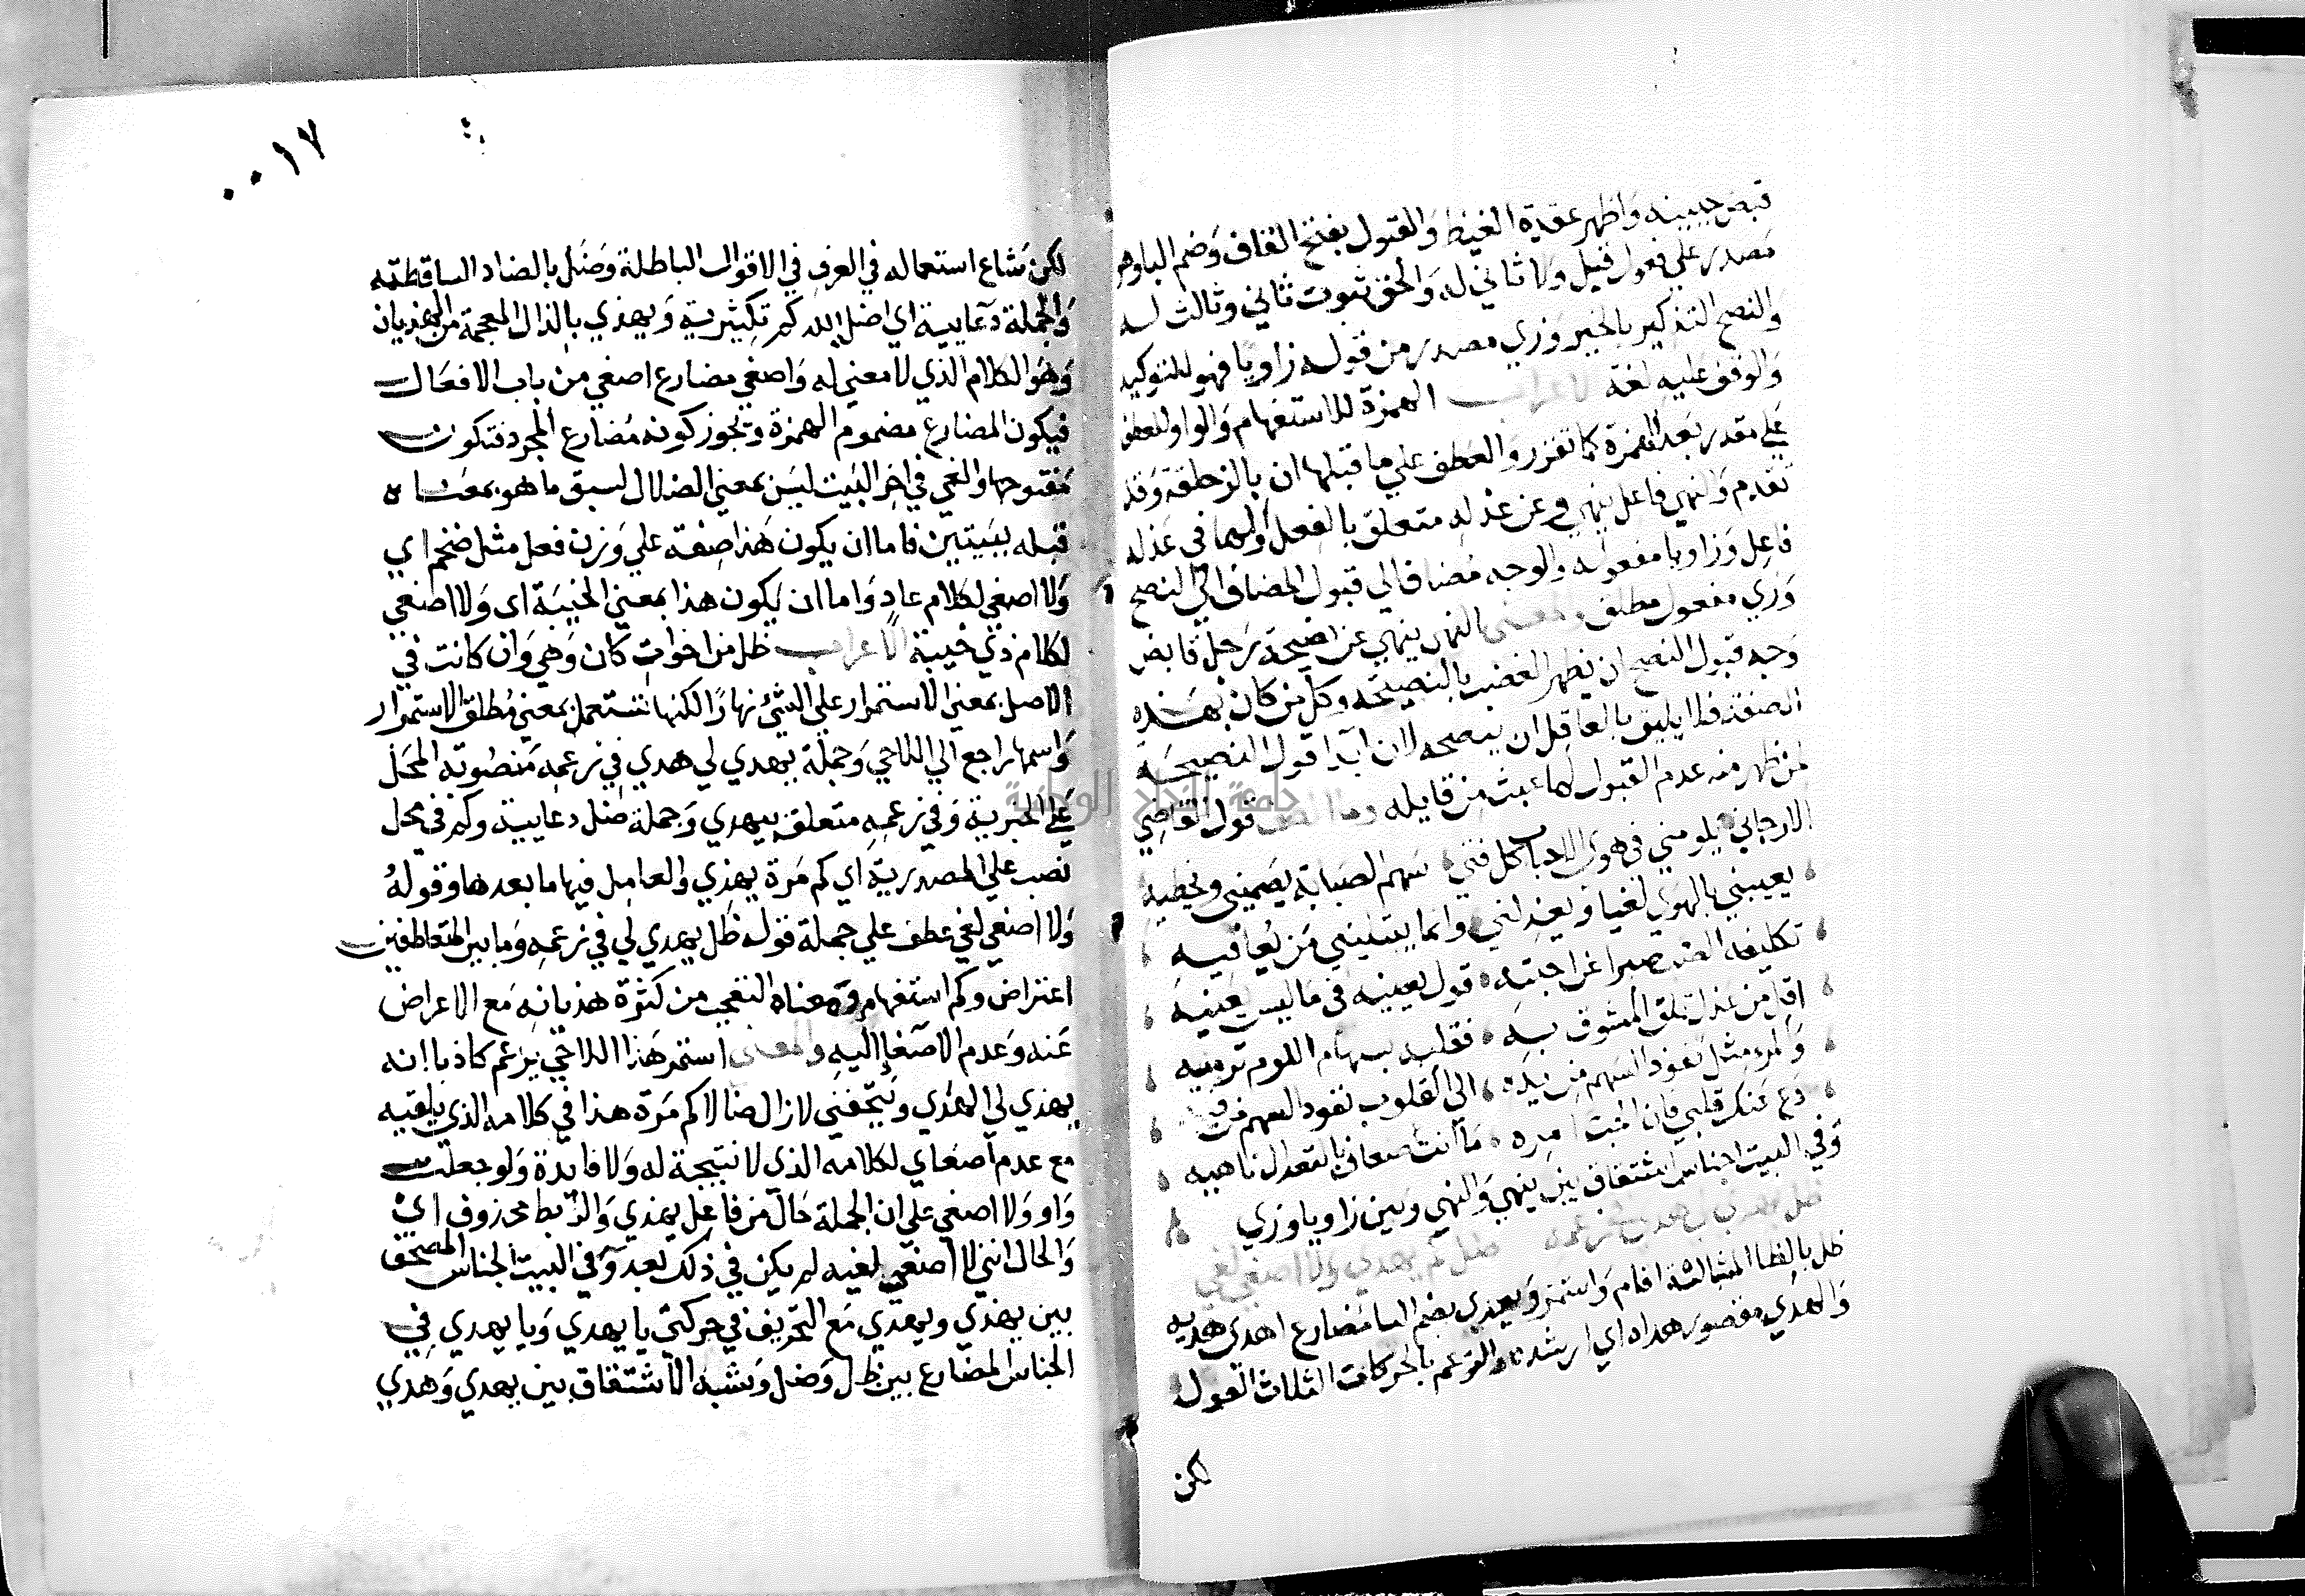 قبض جبينه واظهر عقدة الغيظ والقبول بفتح القاف وضم الباوهو
مصدر علي فعول قيل ولا ثاني له والحق ثبوت ثاني وثالث له
والنصح التذكير بالخير وزي مصدر من قوله زاويا فهو للتوكيد
والوقف عليه لغة الاعراب الهمزة للاستفهام والواو للعطف
علي مقدر بعد الهمزة كما تقرر والعطف علي ما قبلها ان بالزحلقة وقد
تقدم والنهي فاعل ينهي وعن عذله متعلق بالفعل والها في عذله
فاعل وزاويا مفعوله والوجه مضاف الي قبول المضاف الي النصح
وزي مفعول مطلق والمعني النهي ينهي عن نصيحة رجل قابض
وجه قبول النصح ان يظهر الغضب بالنصيحة وكل من كان بهذه
الصفة فلا يليق بالعاقل ان ينصحه لان ابدا قول النصيحة
لمن ظهر منه عدم القبول لها عبث من قايله وما الطف قول القاضي
الارجاني يلومني في هوي الاحباب كل فتي سهم الصبابة يصميني ويخطيه
يعيبني بالهوي لغيا ويعذلني وانما يبتليني من يعافيه
تكليفه الصب صبرا عن احبته قول يعنيه في ما ليس يعنيه
اقل من عذل تلق المشوق به فقلبه بسهام اللوم ترميه
والمرء مثل نفوذ السهم من يده الي القلوب نفوذ السهم من فيه
دع عنك قلبي فان الحب امره ما انت صعاف بالتعدال ناهيه
وفي البيت جناس اشتقاق بين ينهي والنهي وبين زاويا وزي
ظل يهدي لي هدي في زعمه ضل كم يهذي ولا اصغي لغي
ظل بالظا المشالة اقام واستمر ويهدي بضم اليا مضارع اهدي هدية
والهدي مقصور هداه اي ارشده والزعم بالحركات الثلاث القول
لكن
٠٠١٧
لكن شاع استعماله في العرف في الاقوال الباطلة وضل بالضاد الساقطة
والجملة دعايية اي اضل الله كم تكثيرية ويهذي بالذال المعجمة من الهذيان
وهو الكلام الذي لا معني له واصغي مضارع اصغي من باب الافعال
فيكون المضارع مضموم الهمزة ويجوز كونه مضارع المجرد فتكون
مفتوحها والغي في اخر البيت ليس بمعني الضلال لسبق ما هو بمعناه
قبله ببيتين فاما ان يكون هذا صفة علي وزن فعل مثل ضخم اي
ولا اصغي لكلام عاد واما ان يكون هذا بمعني الخيبة اي ولا اصغي
لكلام ذي خيبة الاعراب ظل من اخوات كان وهي وان كانت في
الاصل بمعني الاستمرار علي الشئ نهارا لكنها تستعمل بمعني مطلق الاستمرار
واسمها راجع الي اللاحي وجملة يهدي لي هدي في زعمه منصوبة المحل
علي الخبرية وفي زعمه متعلق بيهدي وجملة ضل دعايية وكم في محل
نصب علي المصدرية اي كم مرة يهذي والعامل فيها ما بعدها وقوله
ولا اصغي لغي عطف علي جملة قوله ظل يهدي لي في زعمه وما بين المتعاطفين
اعتراض وكم استفهام ومعناه التعجب من كثرة هذيانه مع الاعراض
عنه وعدم الاصغا اليه والمعني استمر هذا اللاحي يزعم كاذبا انه
يهدي لي الهدي ويتحفني لا زال ضالا كم مرة هذا في كلامه الذي يلقيه
مع عدم اصغاي لكلامه الذي لا نتيجة له ولا فايدة ولو جعلت
واو ولا اصغي علي ان الجملة حال من فاعل يهذي والرابط محذوف اي
والحال انني لا اصغي لغيه لم يكن في ذلك بعد وفي البيت الجناس المصحف
بين يهذي ويهدي مع التحريف في حركتي يا يهدي ويا يهدي في
الجناس المضارع بين ظل وضل وشبه الاشتقاق بين يهدي وهدي